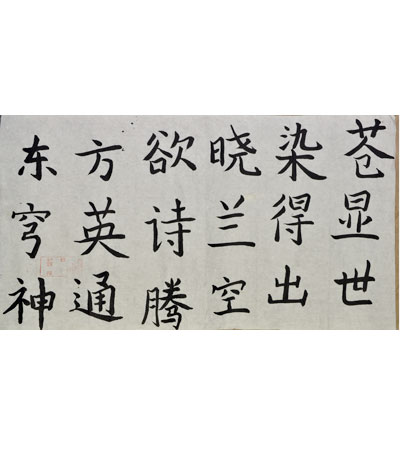 东方欲晓染苍
穹英诗兰得显
神通腾空出世